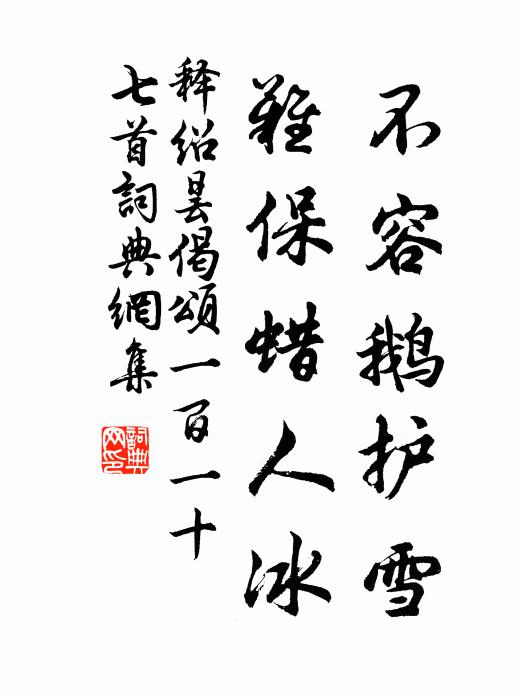 不容鹅护雪
難保蜡人冰
释绍昙偈頌一百一十
七首詞典網集
詞典网印